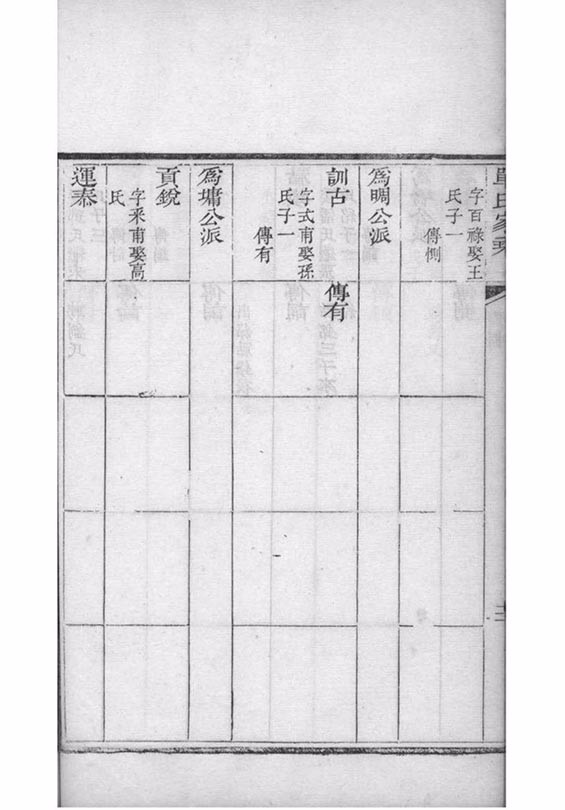 單氏家乘
字百祿娶王
氏子一
傳惻
為晭公派
訓古
字式甫娶孫
氏子一
傳有
傳有
為墉公派
貢銳
字釆甫娶高
氏
運泰